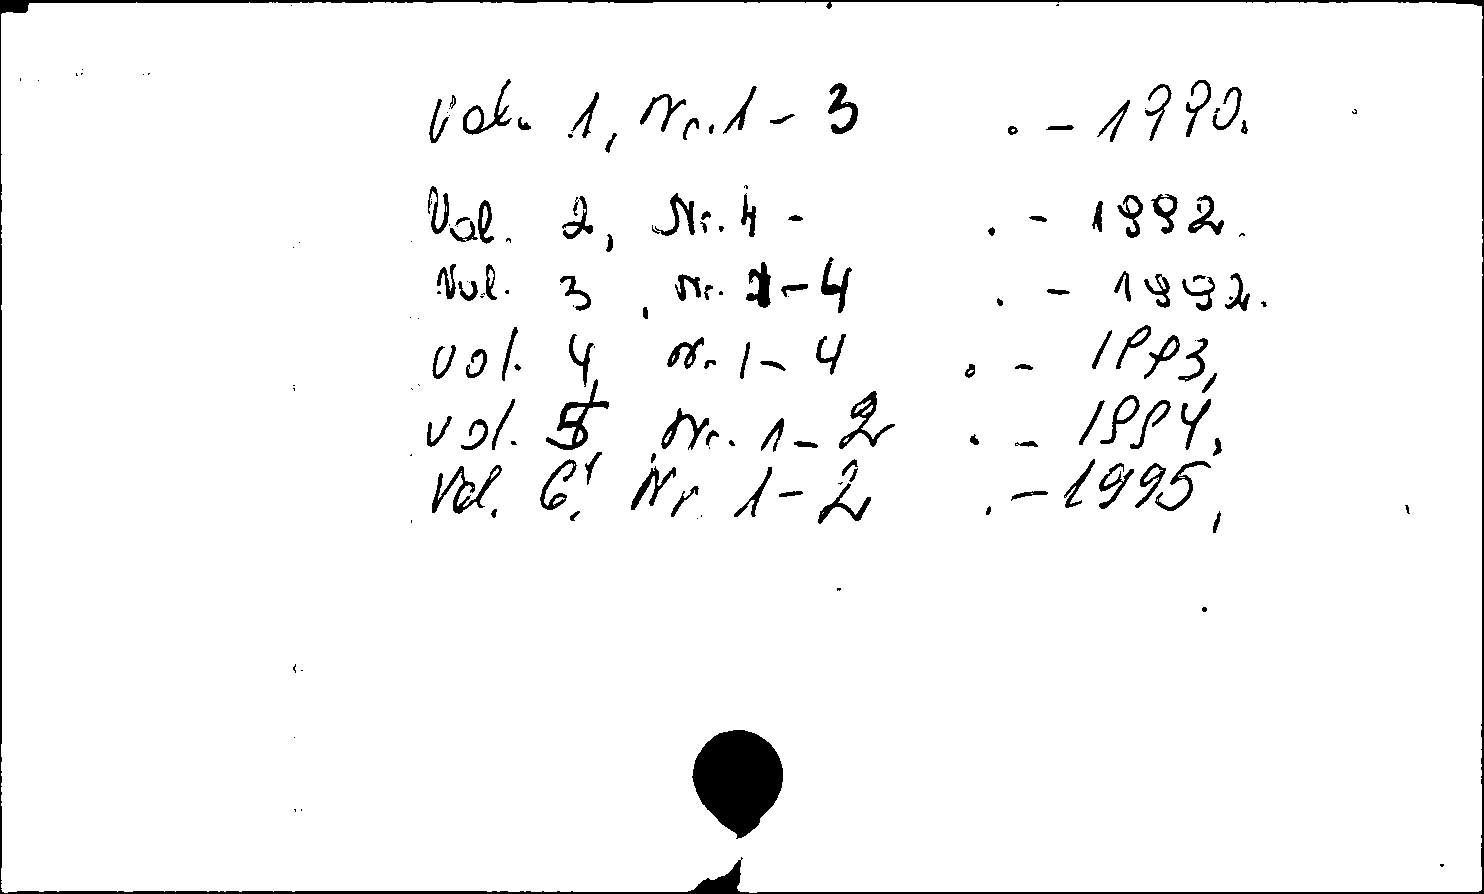 Vol. 1, Nr. 1-3 . - 1990.
Vol. 2, Nr. 4 - . - 1992.
Vol. 3, Nr. 1-4 . - 1992.
vol. 4, Nr. 1-4 . - 1993,
vol. 5, Nr. 1-2 . - 1994,
Vol. 6, Nr 1-2 . - 1995,